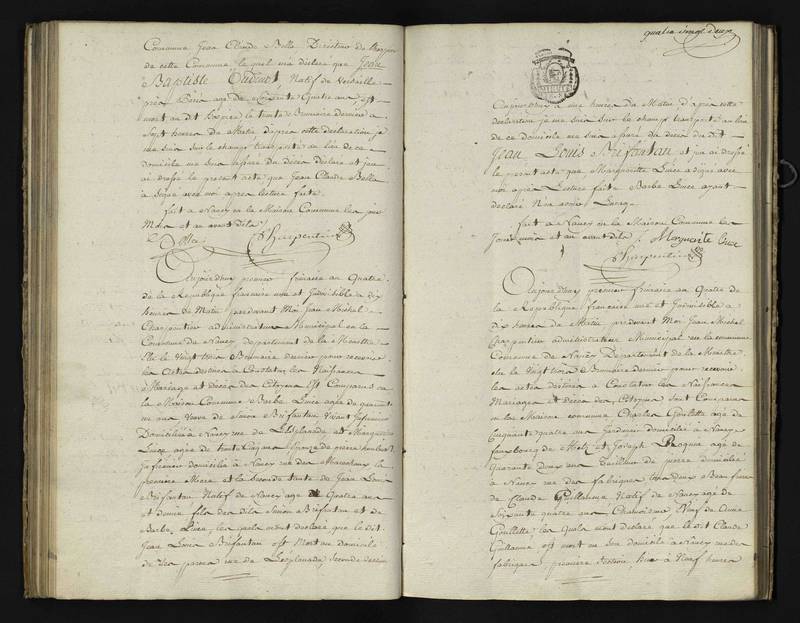 Commune Jean Claude Belle Directeur de
de cette Commune lequel ma déclaré que Jean
Baptiste natif de Versaille
près Paris agé de Soixante Quatre ans, est
mort au dit hospice le trente Brumaire dernier a
Sept heures du Matin d'après cette déclaration je
me suis sur le champ transporté au lieu de ce
domicile me suis assuré du décès déclaré et jen
ai dressé le present acte que Jean Claude Belle
a Signé avec moi après lecture faite
fait à Nancy en la Maison Commune les jour
Mois et an avant dits
Belle Charpentier
Aujourd'huy premier frimaire an Quatre
de la Republique française une et Indivisible a dix
heures du Matin pardevant Moi Jean Michel
Charpentier administrateur Municipal en la
Commune de Nancy département de la Meurthe
élu le vingt trois Brumaire dernier pour recevoir
les Actes destinés a Constater les Naissances
Mariages et décès des Citoyens est Comparus en
la Maison Commune Barbe Lucé agée de quarante
ans Veuve de Simon Brifautau Vivant Infirmier
Domiciliée à Nancy rue de L'Esplanade et Marguerite
Lucé agée de trente Cinq ans Epouse de
Infirmier domicilié à Nancy rue des Marechaux la
premiere Mere et la Seconde tante de Jean Louis
Brifautau Natif de Nancy agé de Quatre ans
et demie fils des dits Simon Brifautau et de
Barbe Lucé, les quels mont déclaré que le dit
Jean Louis Brifautau est Mort au domicile
de ses parens rue de L'Esplanade, seconde section
quatre vingt deux
aujourd'huy a une heures du Matin d'après cette
déclaration je me suis Sur le champ transporté au lieu
de ce domicile me suis assuré du décès du dit
Jean Louis Brifautau et jen ai dressé
le present acte que Marguerite Lucé a signé avec
moi après Lecture faite Barbe Lucé ayant
déclaré Ne savoir Ecrire
fait à Nancy en la Maison Commune les
Jour mois et an avant dits Marguerite Luce
Charpentier
Aujourd'huy premier frimaire an Quatre de
la Republique française une et Indivisible a
dix heures du Matin pardevant Moi Jean Michel
Charpentier administrateur Municipal en la
Commune de Nancy Departement de la Meurthe
élu le Vingt trois Brumaire dernier pour recevoir
les actes destinés a Constater les Naissances
Mariages et décès des Citoyens sont Comparus
en la Maison commune Charles Goullette agé de
Cinquante quatre ans Jardinier domicilié à Nancy
fauxbourg de Metz et Joseph Roqua agé de
Quarante deux ans Tailleur de pierre domicilié
à Nancy rue des fabriques tous deux Beau freres
de Claude Guillaume Natif de Nancy agé de
Soixante quatre ans Veuf de Anne
Goullette, les quels mont déclaré que le dit Claude
Guillaume est mort en son domicile à Nancy rue des
fabriques première section hier à Neuf heures